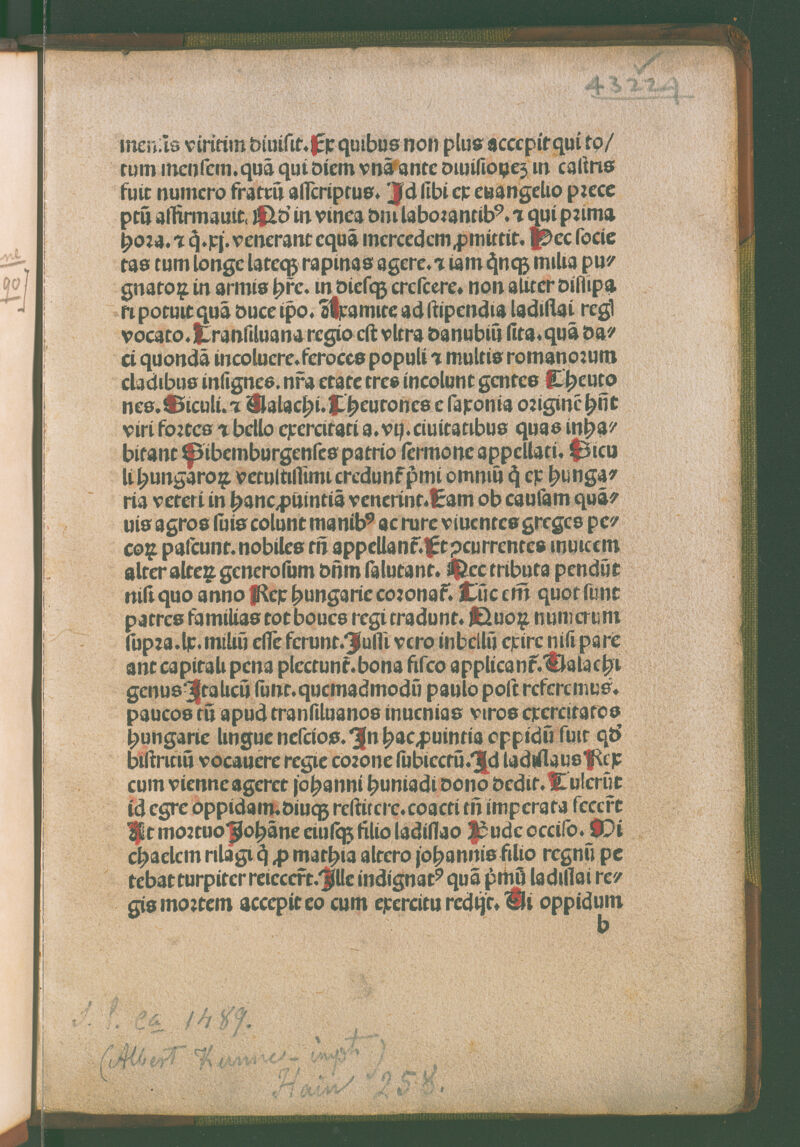 43224
ne
90
mensis viritim diuisit. Ex quibus non plus accepit qui to/
tum mensem. quā qui diem vnā ante diuisiones in castris
fuit numero fratrū asscriptus. Id sibi ex euangelio prece
ptū affirmauit. Qd' in vinea dni laborantib⁹. ⁊ qui prima
hora. ⁊ q̊. xj. venerant equā mercedem ꝓmittit. Hec socie
tas tum longe lateqꝫ rapinas agere. ⁊ iam q̊nqꝫ milia pu⸗
gnatoꝝ in armis hr̄e. in diesqꝫ crescere. non aliter dissipa
ri potuit quā duce ip̄o. Axamite ad stipendia ladislai regl
vocato. Transiluana regio est vltra danubiū sita. quā da⸗
ci quondā incoluere. feroces populi ⁊ multis romanorum
cladibus insignes. nr̄a etate tres incolunt gentes Theuto
nes. Siculi. ⁊ Valachi. Theutones e saxonia originē hn̄t
viri fortes ⁊ bello exercitati a. vij. ciuitatibus quas inha⸗
bitant Sibemburgenses patrio sermone appellati. Sicu
li hungaroꝝ vetustissimi credunt̄ p̊mi omniū q̊ ex hunga⸗
ria veteri in hanc ꝓuintiā venerint. Eam ob causam quā⸗
uis agros suis colunt manib⁹ ac rure viuentes greges pe⸗
coꝝ pascunt. nobiles tn̄ appellant̄. Et ꝯcurrentes inuicem
alter alteꝝ generosum dn̄m salutant. Nec tributa pendūt
nisi quo anno Rex hungarie coronat̄. Tūc em̄ quot sunt
patres familias tot boues regi tradunt. Quoꝝ numerum
supra. lx. miliū esse ferunt. Jussi vero inbellū exire nisi pare
ant capitali pena plectunt̄. bona fisco applicant̄. Valachi
genus Italicū sunt. quemadmodū paulo post referemus.
paucos tū apud transiluanos inuenias viros exercitatos
hungarie lingue nescios. In hac ꝓuintia oppidū fuit qd'
bistriciū vocauere regie corone subiectū. Id ladislaus Rex
cum vienne ageret johanni huniadi dono dedit. Tulerūt
id egre oppidam. diuqꝫ restitere. coacti tn̄ imperata fecer̄t
At mortuo Johāne eiusqꝫ filio ladislao Bude occiso. Mi
chaelem rilagi q̊ ꝓ mathia altero johannis filio regnū pe
tebat turpiter reiecer̄t. Ille indignat⁹ quā p̊mū ladislai re⸗
gis mortem accepit eo cum exercitu redijt. Vi oppidum
b
S. l. ca 1489.
(Albert Kunne - impr.)
Hain 258.